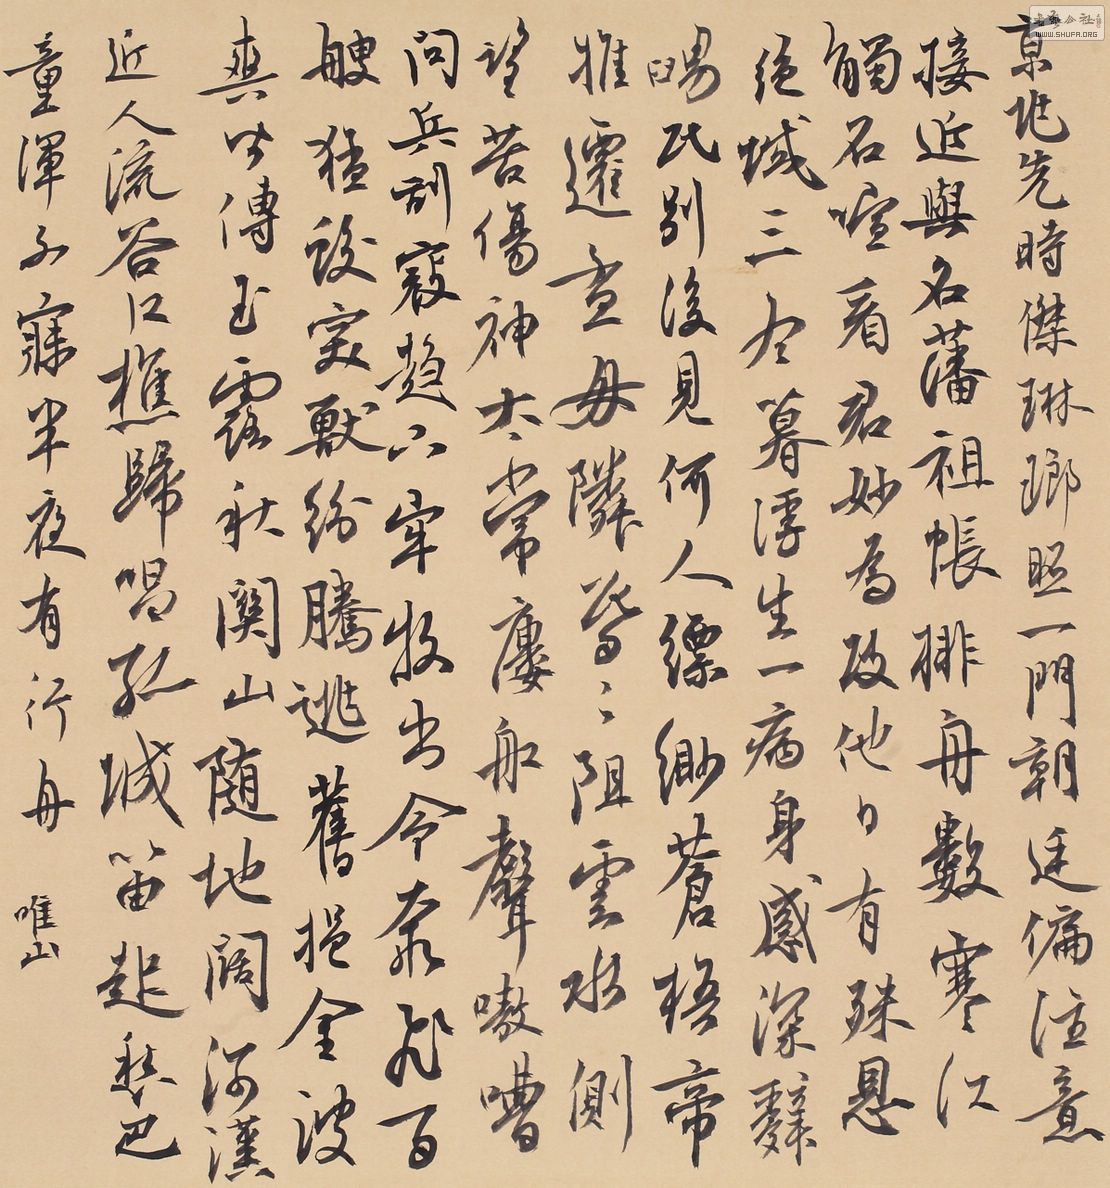 京兆先時傑琳瑯照一門朝廷偏注意
接近與名藩祖帳排舟數寒江
觸石喧看君妙為政他日有殊恩
絕域三冬暮浮生一病身感深辭
舅氏別後見何人縹緲蒼梧帝
推遷孟母隣昏昏阻雲水側
望苦傷神太常樓船聲嗷嘈
問兵刮寇趨下牢牧出令奔飛百
艘猛蛟突獸紛騰逃舊挹金波
爽皆傳玉露秋關山隨地闊河漢
近人流谷口樵歸唱孤城笛起愁巴
童渾不寐半夜有行舟
唯山
WWW.SHUFA.ORG